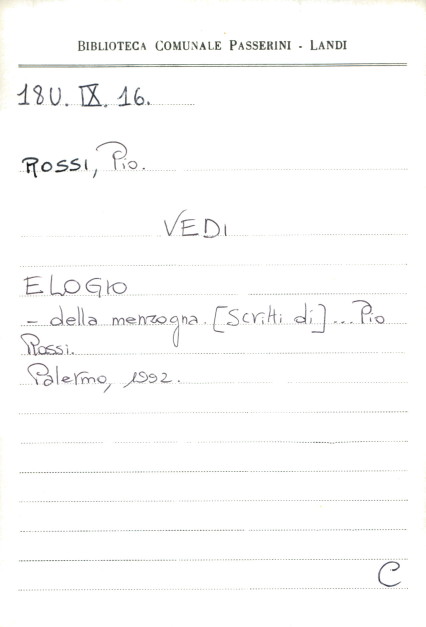 BIBLIOTECA COMUNALE PASSERINI - LANDI
18U. IX. 16.
ROSSI, Pio.
VEDI
ELOGIO
- della menzogna. [Scritti di]... Pio
Rossi.
Palermo, 1992.
C